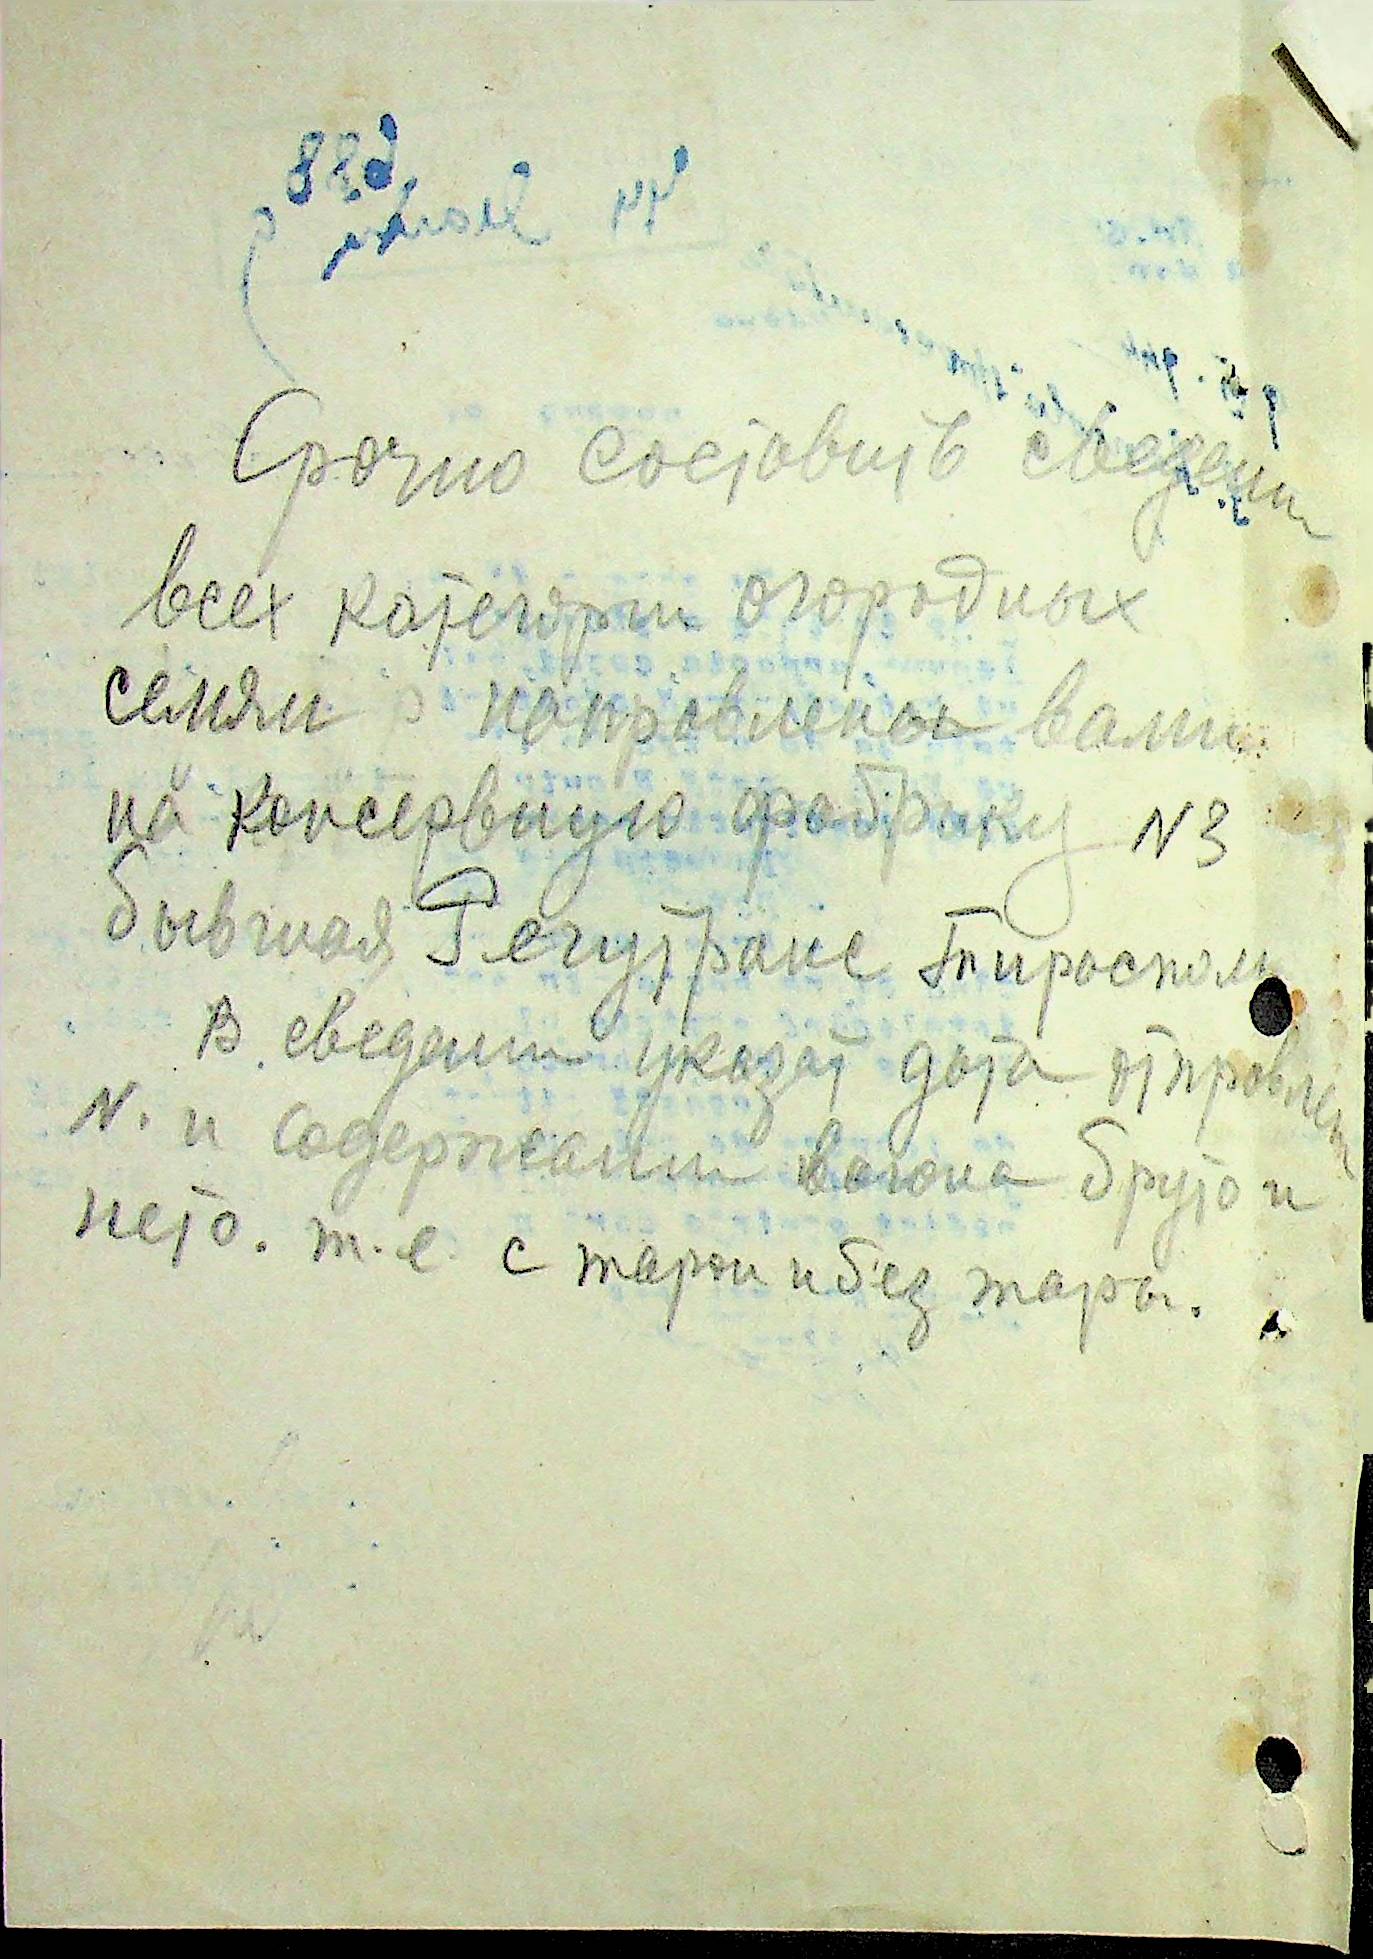 Срочно составить сведени
всех категори огородных
семян направлены вами
на консервную фабрику N3
бывшая Регутранс Тирасполь
В сведени указат дата отправлен
N. и содержани вагона бруто и
нето. т.е с тарои и без тары.